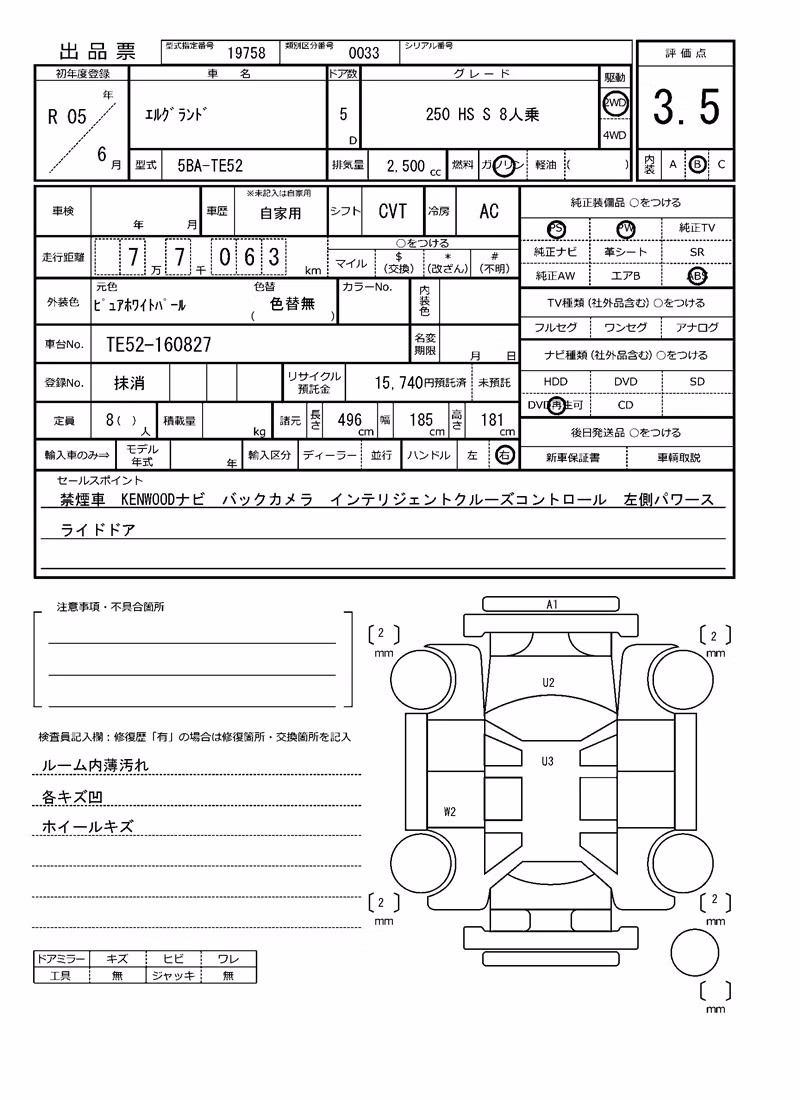 出品票 型式指定番号 19758 類別区分番号 0033 シリアル番号
評価点
3.5
内装 A B C
初年度登録 車名 ドア数 グレード 駆動
R 05 年 6 月 エルグランド 5 D 250 HS S 8人乗 2WD
4WD
型式 5BA-TE52 排気量 2,500 cc 燃料 ガソリン 軽油 ( )
車検 年 月 車歴 ※未記入は自家用 自家用 シフト CVT 冷房 AC
走行距離 7 万 7 千 0 6 3 km ○をつける
マイル $(交換) *(改ざん) #(不明)
外装色 元色 ピュアホワイトパール 色替 ( 色替無 ) カラーNo. 内装色
車台No. TE52-160827 名変期限 月 日
登録No. 抹消 リサイクル預託金 15,740円預託済 未預託
定員 8( )人 積載量 kg 諸元 長さ 496 cm 幅 185 cm 高さ 181 cm
輸入車のみ⇒ モデル年式 年 輸入区分 ディーラー 並行 ハンドル 左 右
純正装備品 ○をつける
PS PW 純正TV
純正ナビ 革シート SR
純正AW エアB ABS
TV種類(社外品含む)○をつける
フルセグ ワンセグ アナログ
ナビ種類(社外品含む)○をつける
HDD DVD SD
DVD再生可 CD
後日発送品 ○をつける
新車保証書 車輌取説
セールスポイント
禁煙車 KENWOODナビ バックカメラ インテリジェントクルーズコントロール 左側パワース
ライドドア
注意事項・不具合箇所
検査員記入欄:修復歴「有」の場合は修復箇所・交換箇所を記入
ルーム内薄汚れ
各キズ凹
ホイールキズ
ドアミラー キズ ヒビ ワレ
工具 無 ジャッキ 無
A1
[ 2 ] mm [ 2 ] mm
U2
U3
W2
[ 2 ] mm [ 2 ] mm
[ ] mm